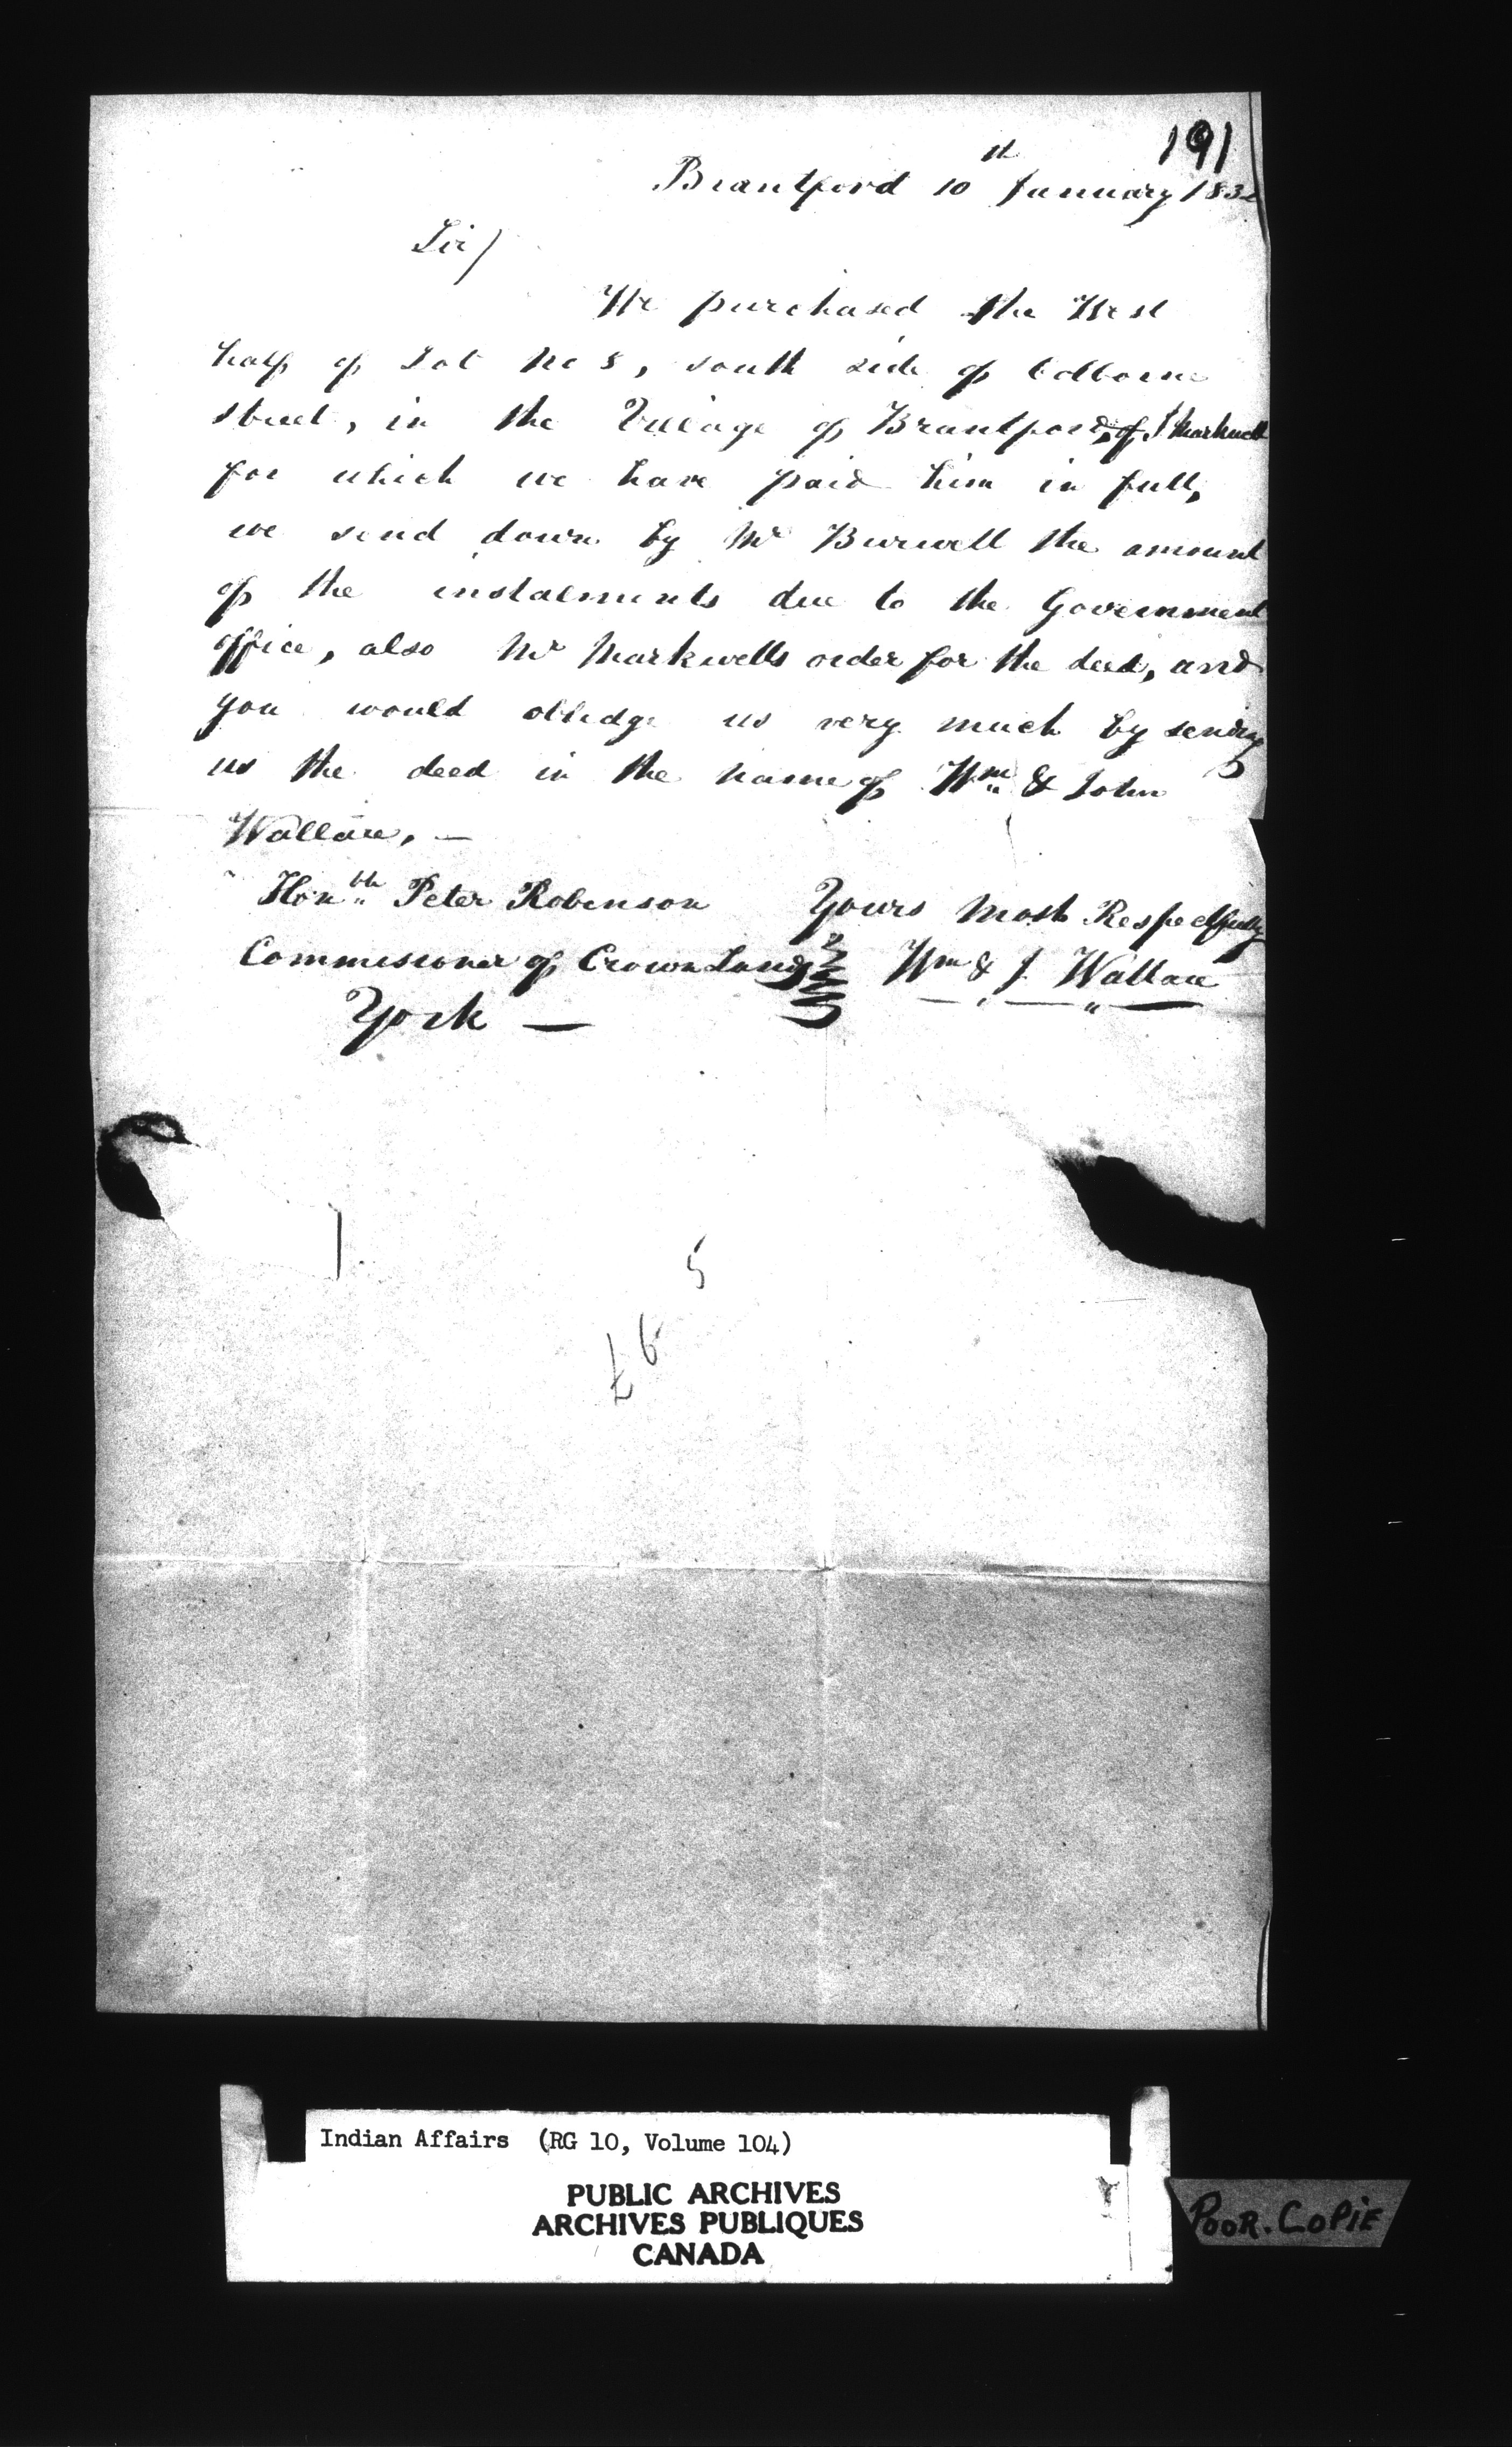 191
Brantford 10th January 183
Sir)
We purchased the West
half of Lot No 8, south side of Colborne
street, in the Village of Brantford, of J Markwell
for which we have paid him in full,
we send down by Mr Burwell the amount
of the instalments due to the Government
office, also Mr Markwells order for the deed, and
you would obledge us very much by sending
us the deed in the name of Wm & John
Wallace, —
Honble Peter Robinson
Commissioner of Crown Lands
York —
Yours Most Respectfully
Wm & J Wallace
5
£6
Indian Affairs (RG 10, Volume 104)
PUBLIC ARCHIVES
ARCHIVES PUBLIQUES
CANADA
POOR. COPIE